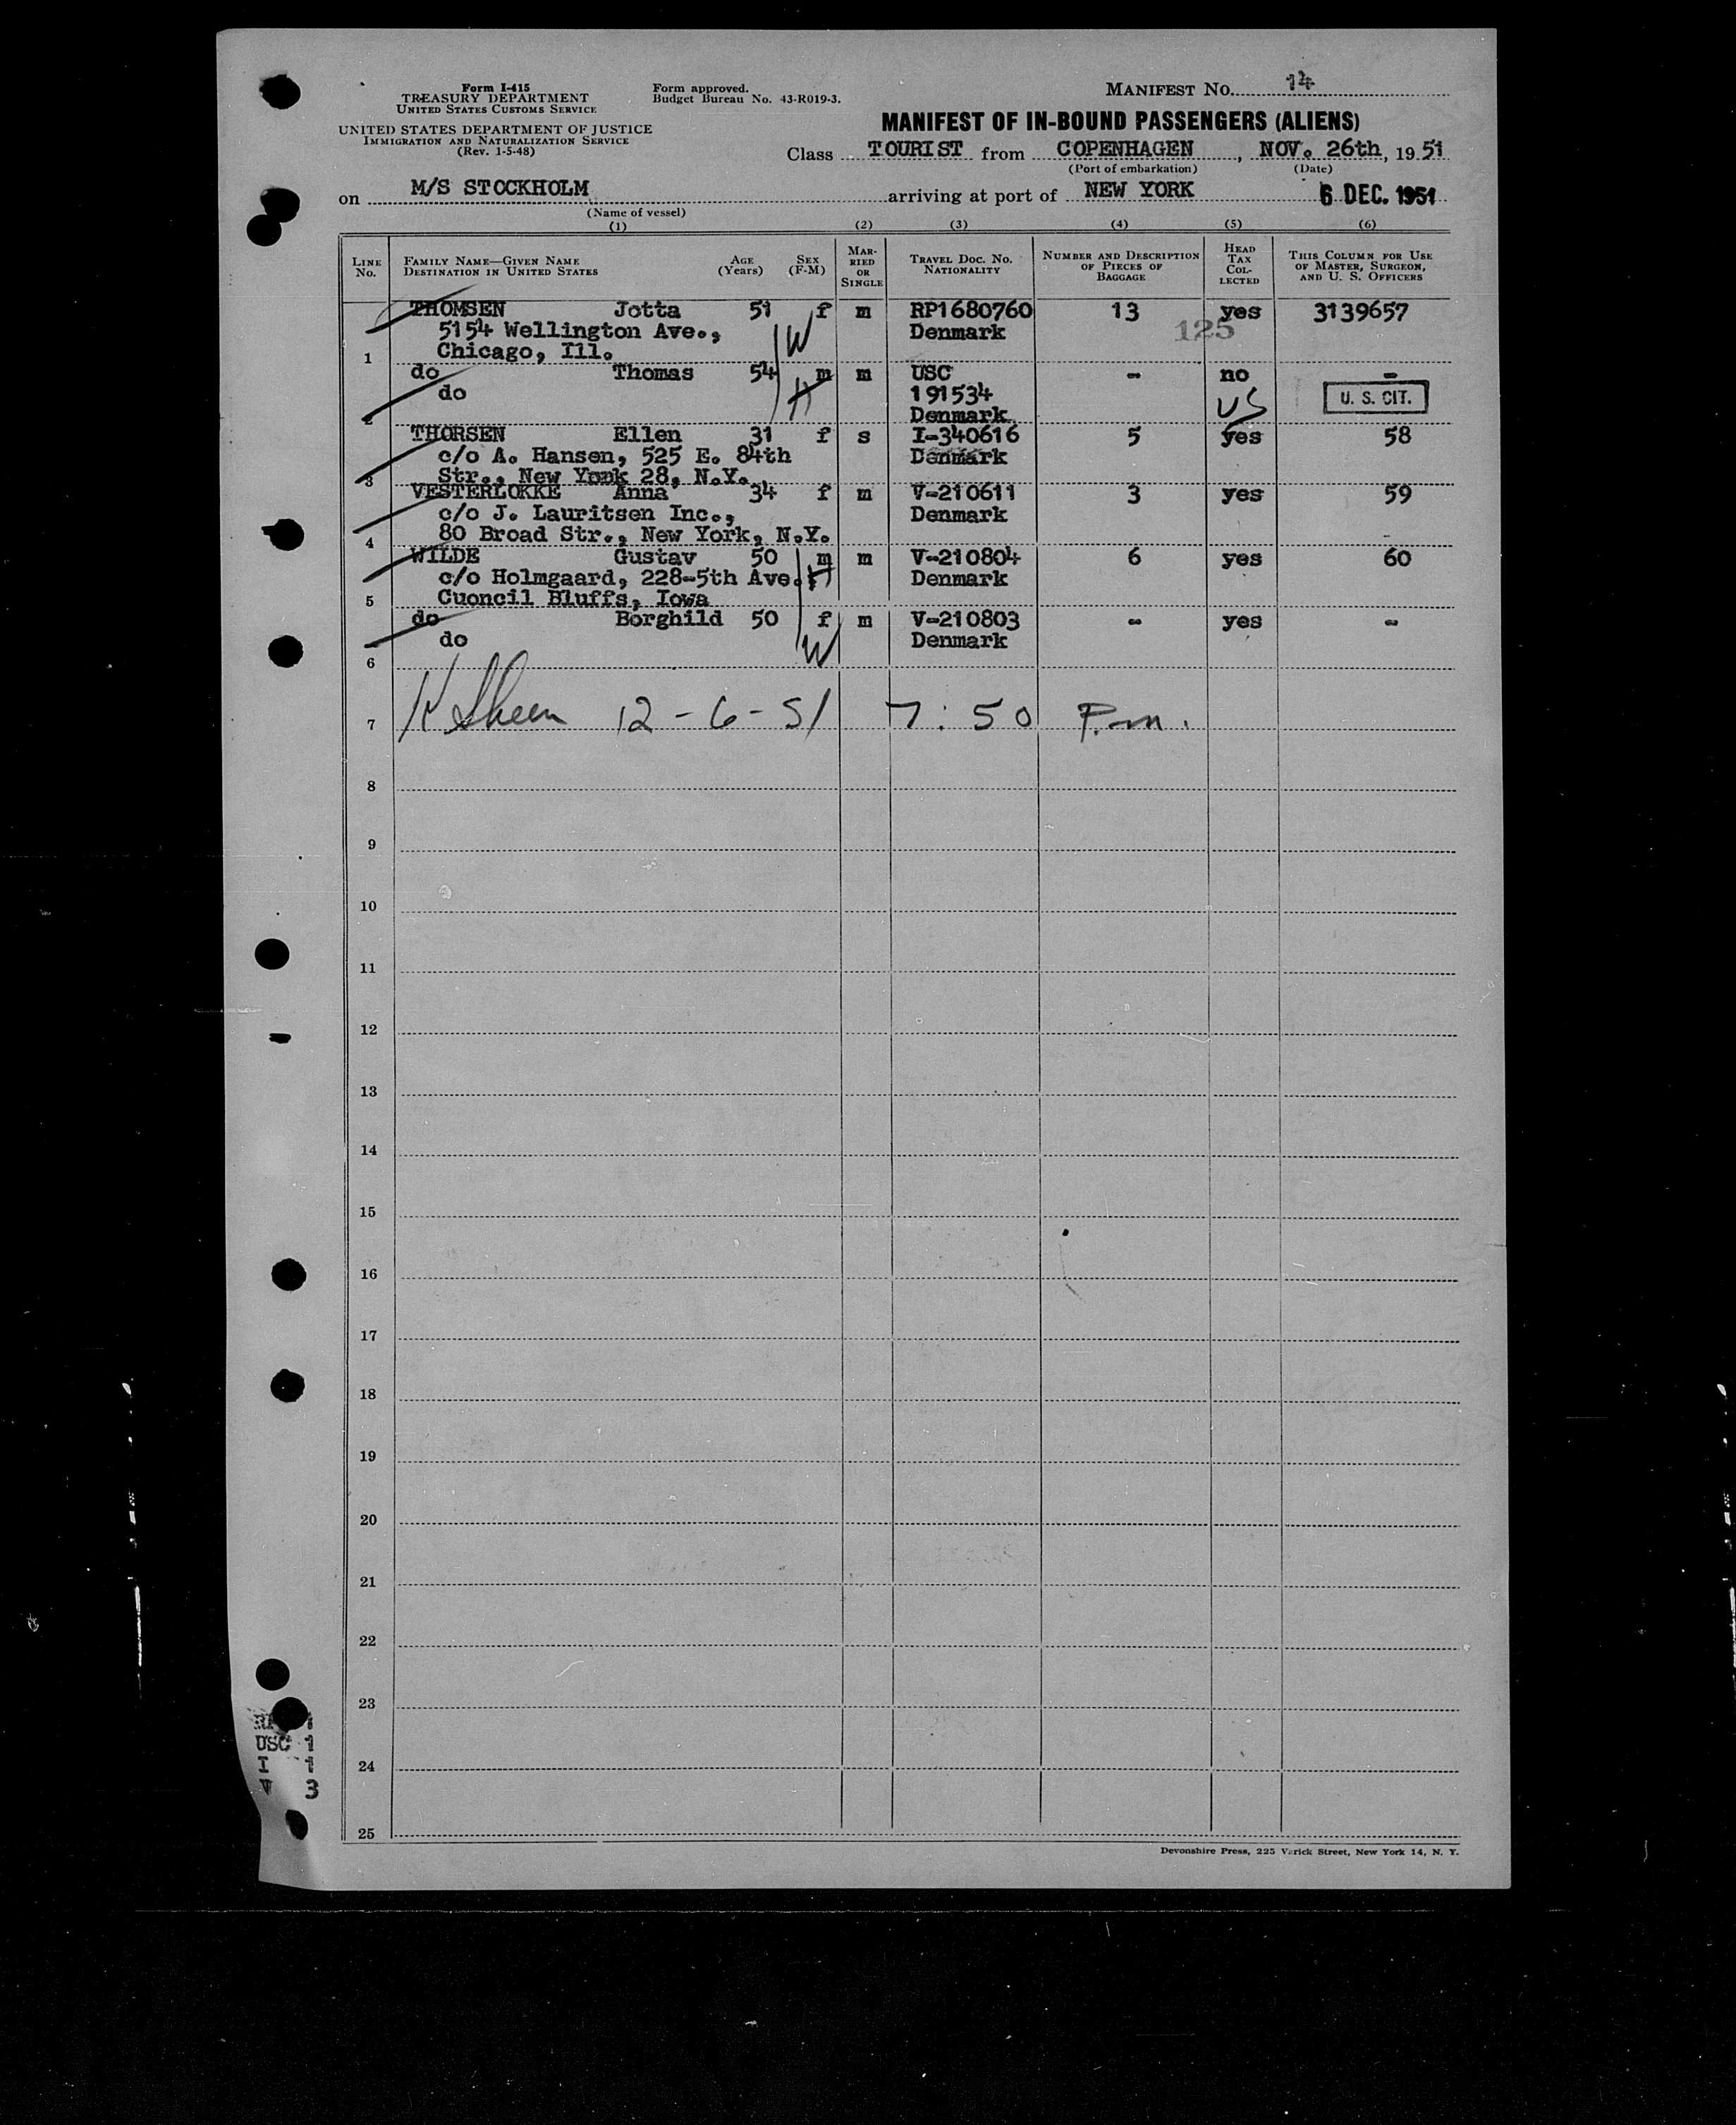 Form I-415
TREASURY DEPARTMENT
UNITED STATES CUSTOMS SERVICE
UNITED STATES DEPARTMENT OF JUSTICE
IMMIGRATION AND NATURALIZATION SERVICE
(Rev. 1-5-48)
Form approved.
Budget Bureau No. 43-R019-3.
MANIFEST NO. 14
MANIFEST OF IN-BOUND PASSENGERS (ALIENS)
Class TOURIST from COPENHAGEN, NOV. 26th, 1951
(Port of embarkation) (Date)
on M/S STOCKHOLM arriving at port of NEW YORK 6 DEC. 1951
(Name of vessel)
(1) (2) (3) (4) (5) (6)
LINE No. FAMILY NAME—GIVEN NAME DESTINATION IN UNITED STATES AGE (Years) SEX (F-M) MARRIED OR SINGLE TRAVEL DOC. NO. NATIONALITY NUMBER AND DESCRIPTION OF PIECES OF BAGGAGE HEAD TAX COLLECTED THIS COLUMN FOR USE OF MASTER, SURGEON, AND U. S. OFFICERS
THOMSEN Jotta 51 f m RP1680760 13 yes 3139657
5154 Wellington Ave., W Denmark 125
1 Chicago, Ill.
do Thomas 54 m m USC - no -
do H 191534 US U. S. CIT.
2 Denmark
THORSEN Ellen 31 f s I-340616 5 yes 58
c/o A. Hansen, 525 E. 84th Denmark
3 Str., New York 28, N.Y.
VESTERLOKKE Anna 34 f m V-210611 3 yes 59
c/o J. Lauritsen Inc., Denmark
4 80 Broad Str., New York, N.Y.
WILDE Gustav 50 m m V-210804 6 yes 60
c/o Holmgaard, 228-5th Ave. H Denmark
5 Cuoncil Bluffs, Iowa
do Borghild 50 f m V-210803 - yes -
do W Denmark
6
7 12-6-51 7:50 P.m.
8
9
10
11
12
13
14
15
16
17
18
19
20
21
22
23
24
25
USC 1
I 1
V 3
Devonshire Press, 225 Varick Street, New York 14, N. Y.